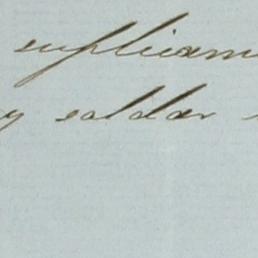 suplicam
y saldar